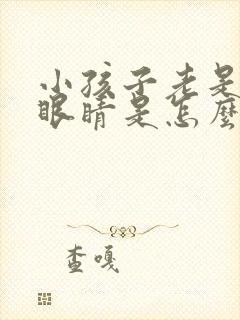 小孩子老是
眼睛是怎麼
查嘎